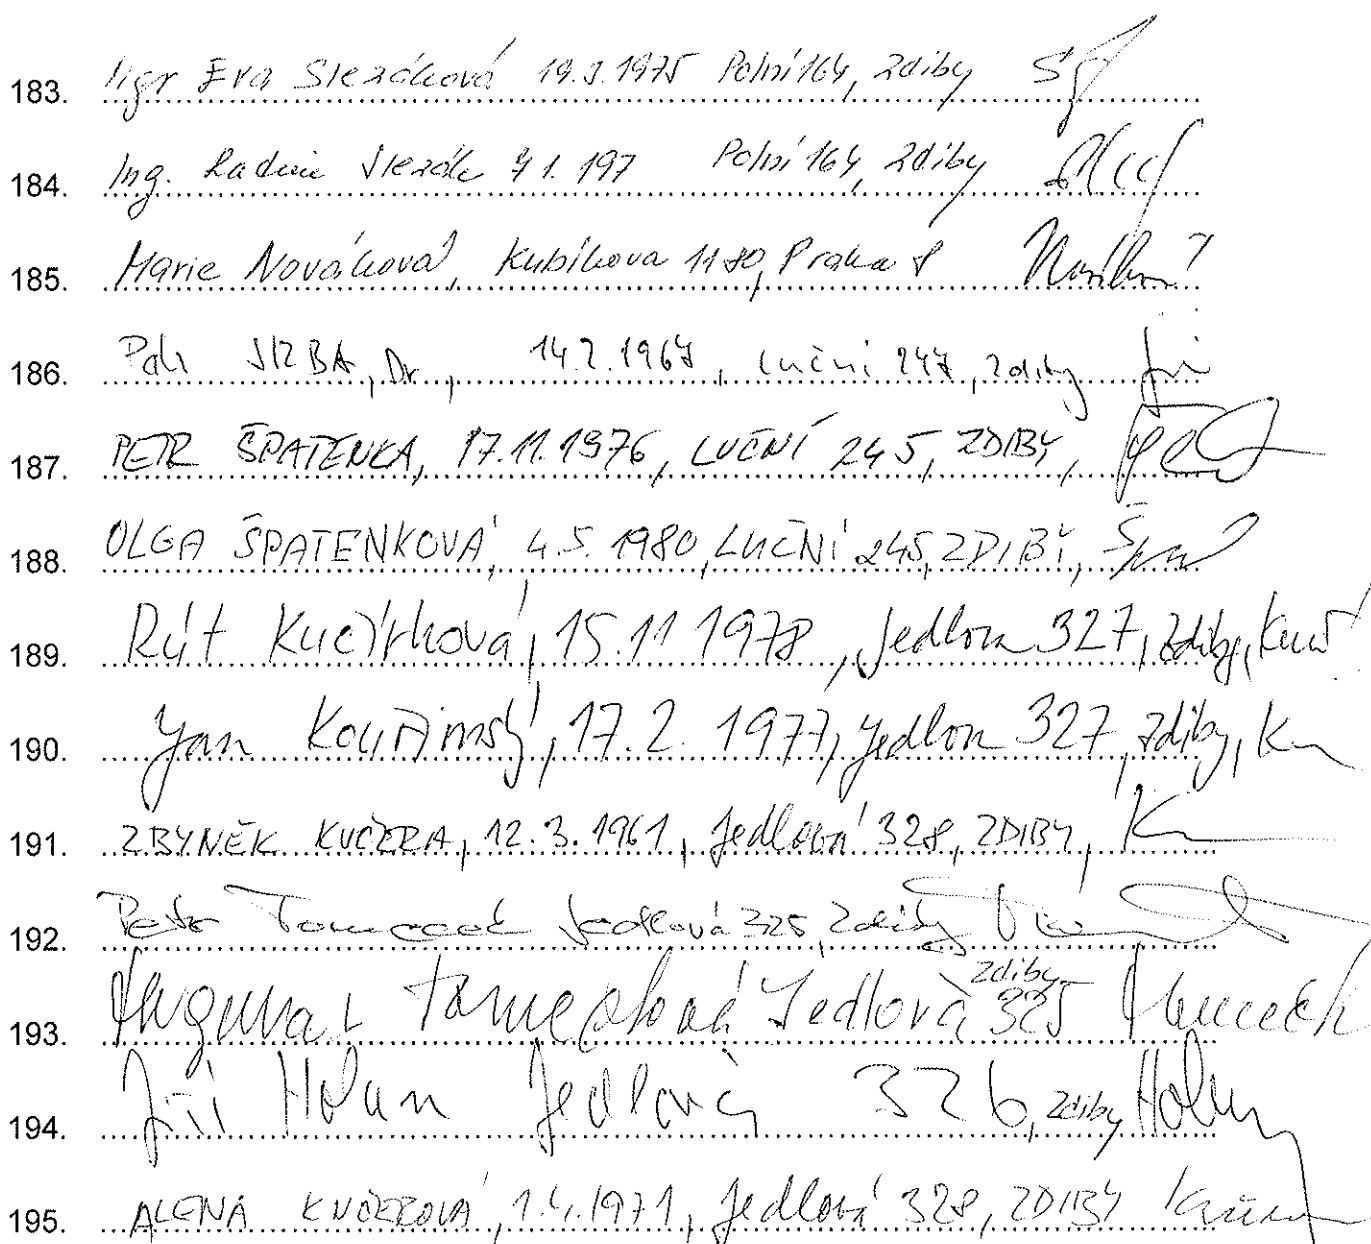 183. Mgr Eva Slezáková 19.3.1975 Polní 164, Zdiby
184. Ing. Radim Slezák 7.1.197 Polní 164, Zdiby
185. Marie Nováková, Kubíkova 1180, Praha 8
186. JIZBA, Dr., 14.2.1967, Luční 247, Zdiby
187. PETR ŠPATENKA, 17.11.1976, LUČNÍ 245, ZDIBY,
188. OLGA ŠPATENKOVÁ, 4.5.1980, LUČNÍ 245, ZDIBY,
189. Rút Kučírková, 15.11 1978, Jedlová 327, Zdiby,
190. Jan Kouřimský, 17.2.1977, Jedlová 327, Zdiby,
191. ZBYNĚK KUČERA, 12.3.1961, Jedlová 328, ZDIBY,
192. Petr Jedlová 325, Zdiby
193. Jedlová 325 Zdiby
194. Jiří Holan Jedlová 326, Zdiby
195. ALENA KUČEROVÁ, 1.4.1971, Jedlová 328, ZDIBY